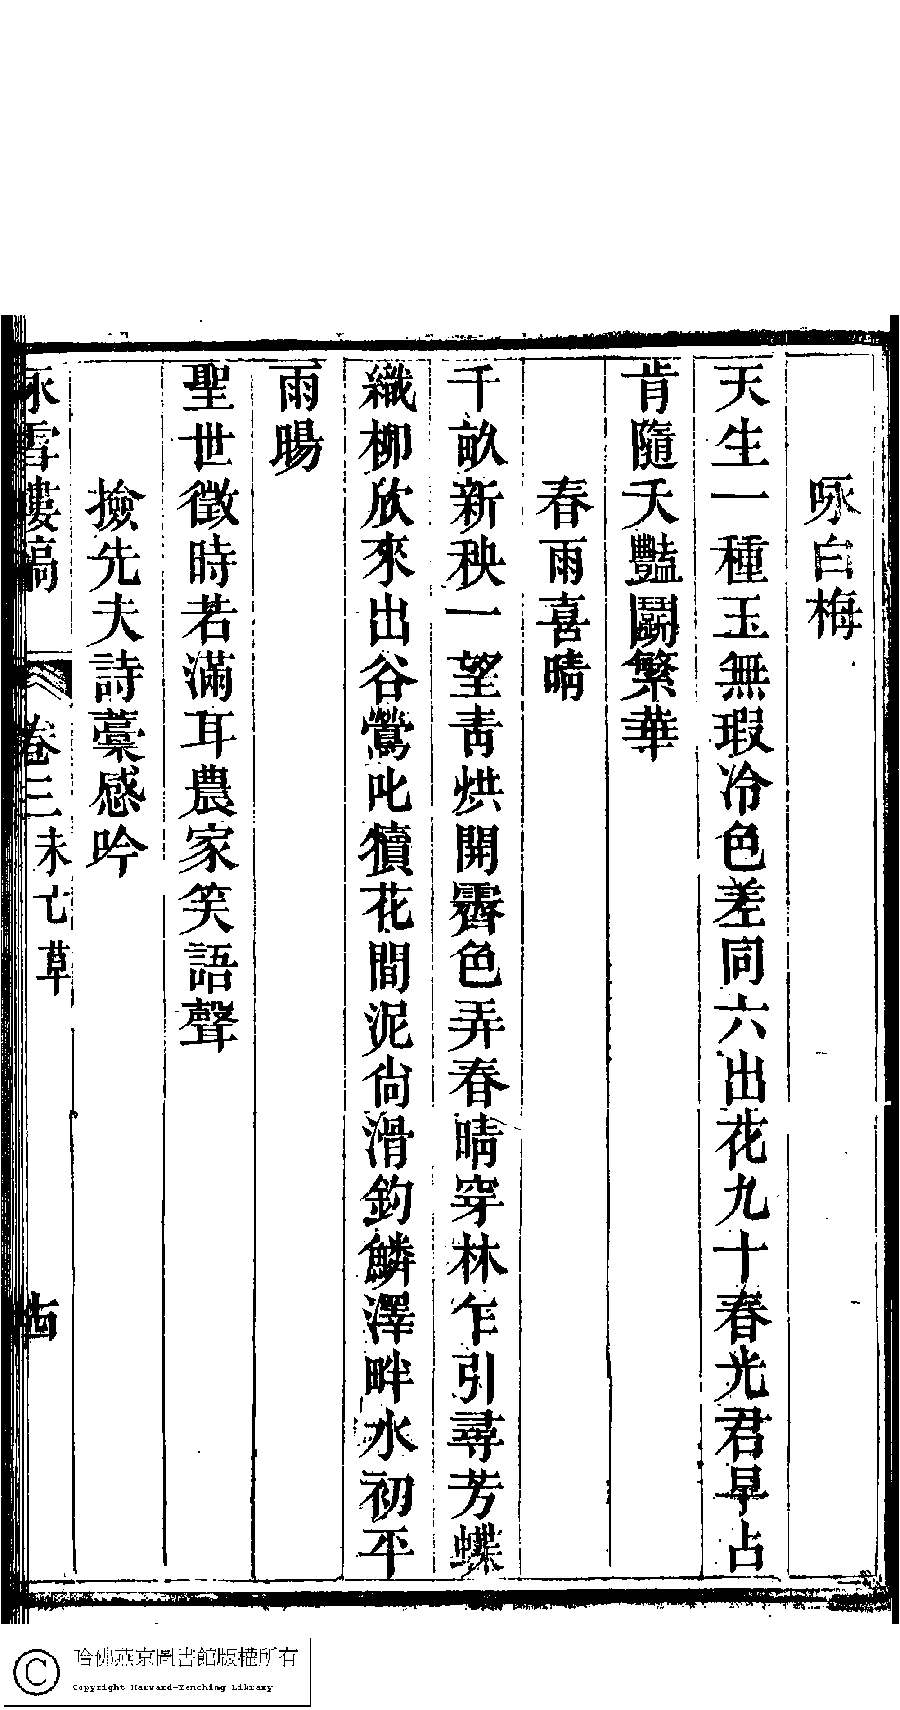 咏白梅
天生一種玉無瑕冷色差同六出花九十春光君早占
肯隨夭豔鬬繁華
春雨喜晴
千畝新秧一望青烘開霽色弄春晴穿林乍引尋芳蝶
織柳欣來出谷鶯叱犢花間泥尙滑鈎鱗澤畔水初平
雨暘
聖世徵時若滿耳農家笑語聲
撿先夫詩藁感吟
咏雪樓稿
卷三未亡草
哈佛燕京圖書館版權所有
Copyright Harvard-Yenching Library